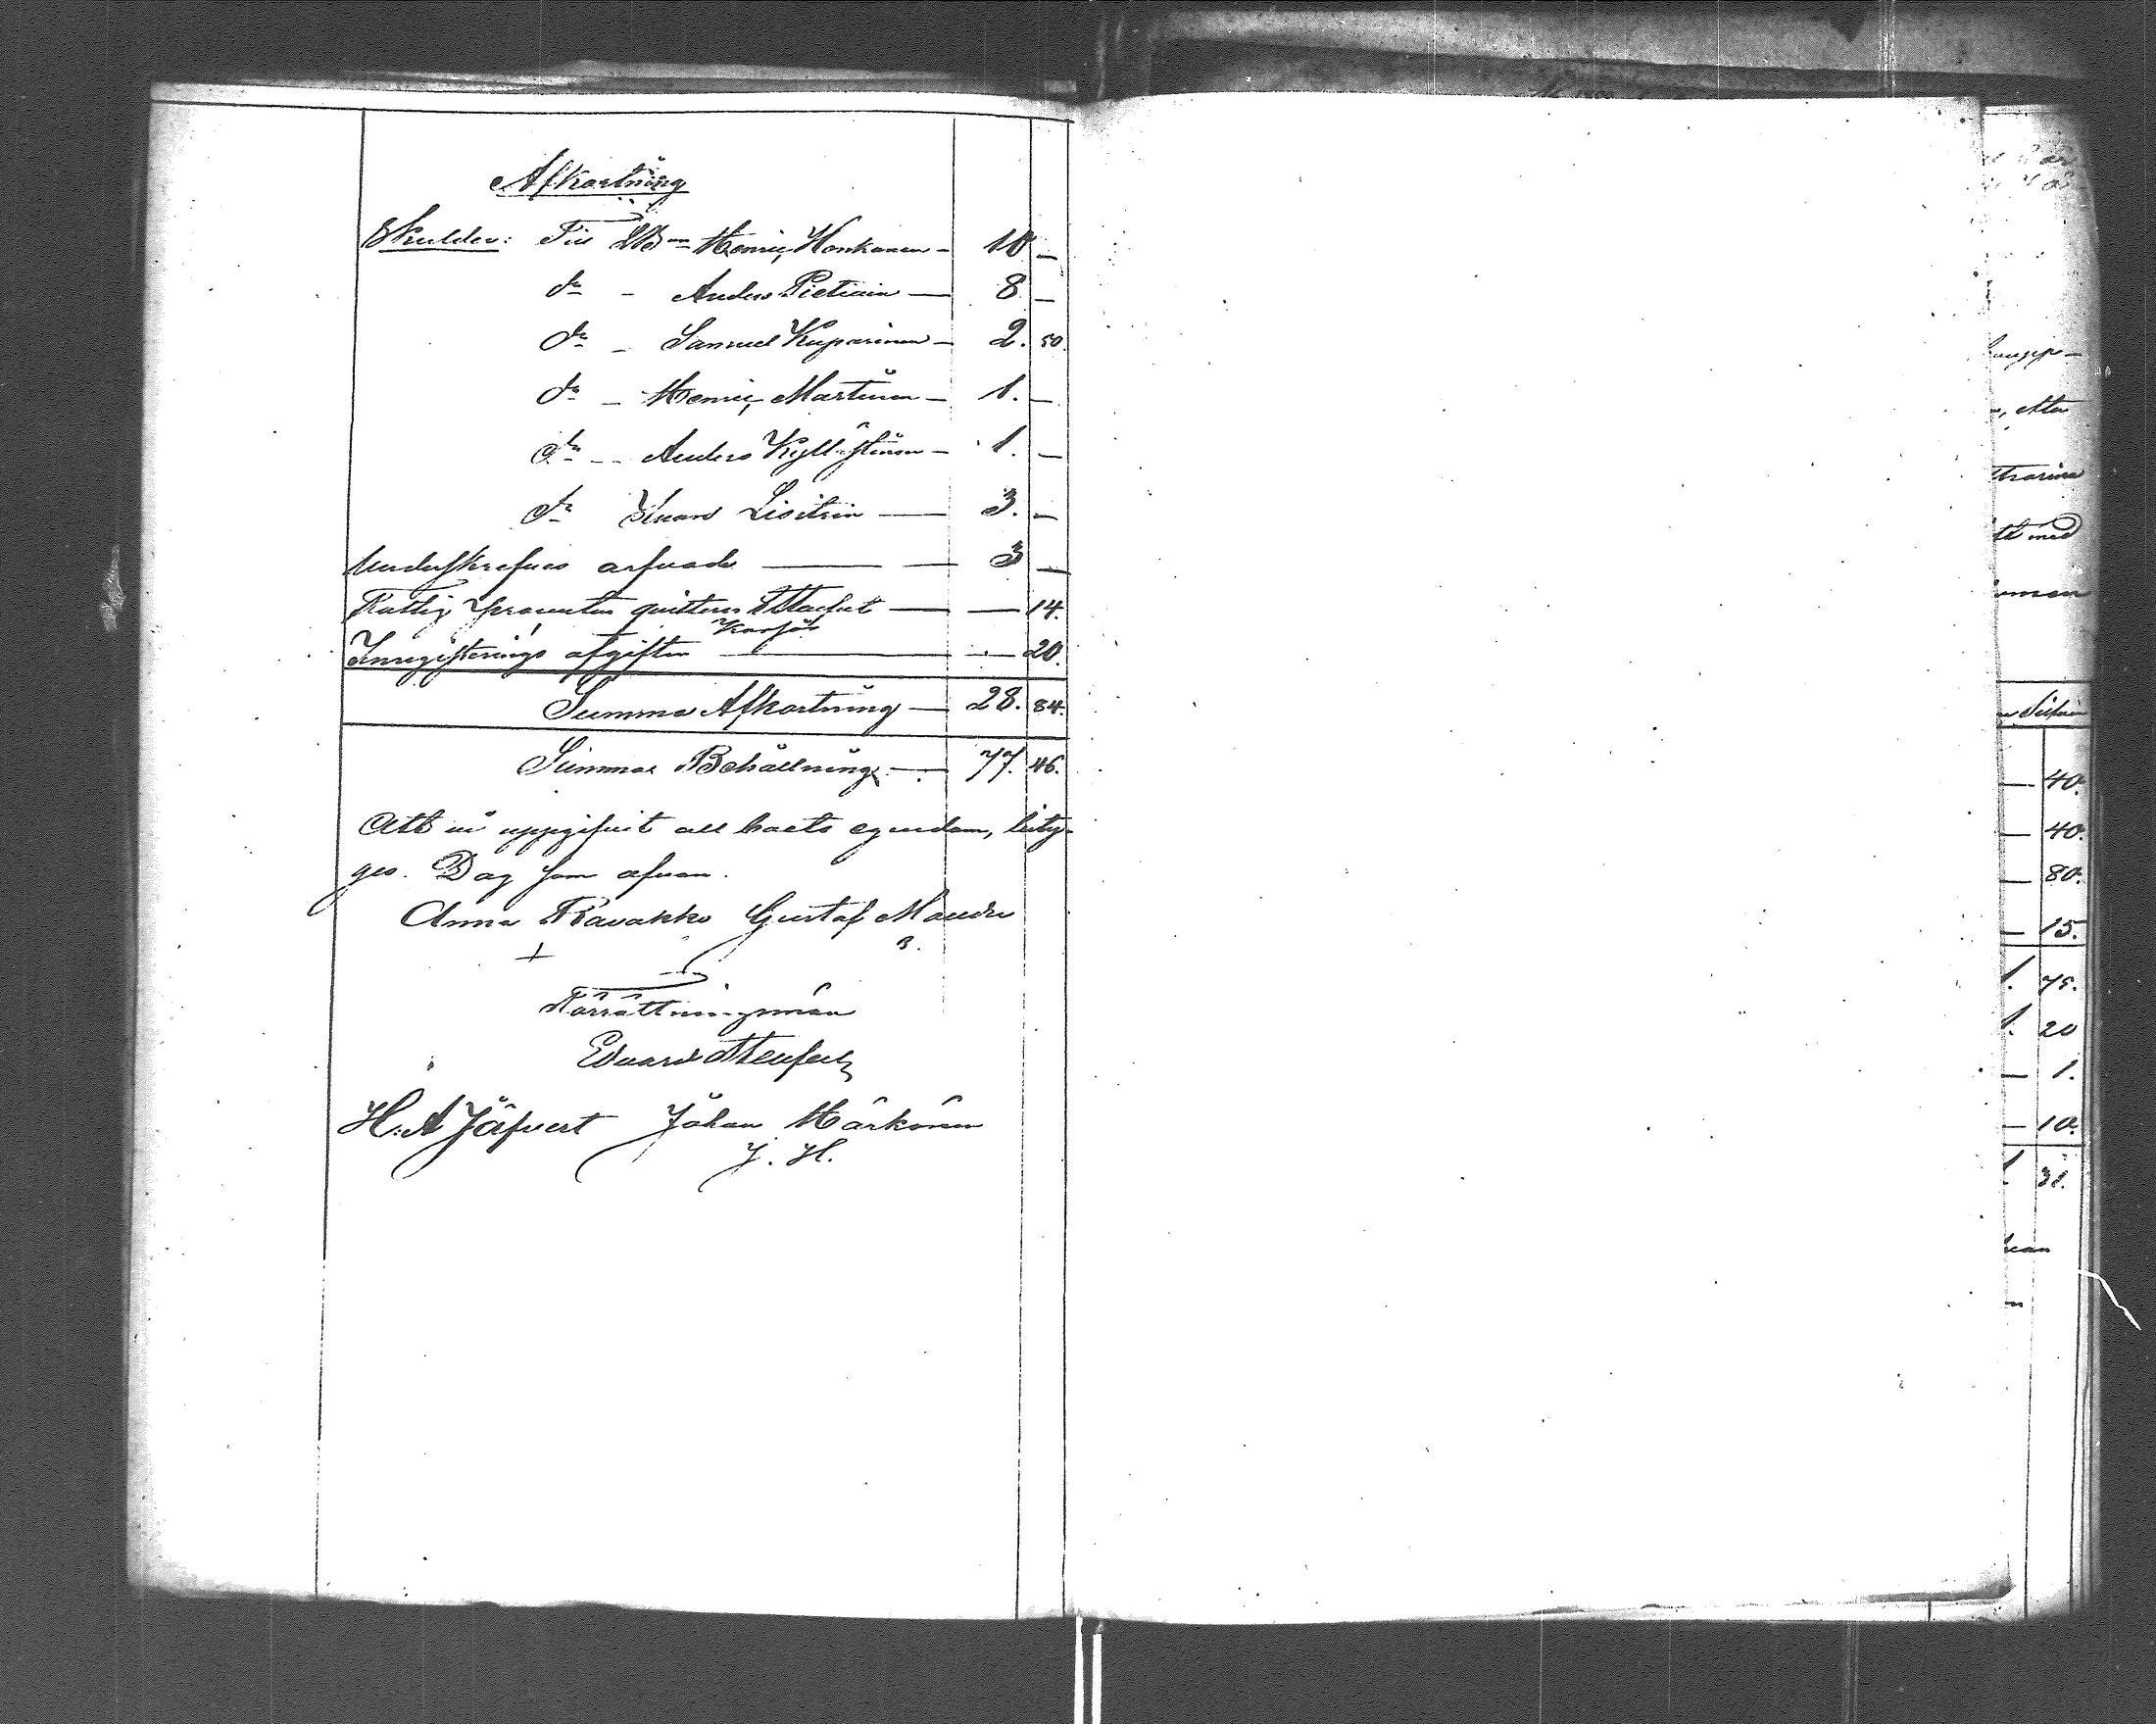 Afkortning
Skulder: Till LB:n Henric Honkanen — 10 —
d:o - Anders Pietiäin — 8 —
d:o - Samuel Kuparinen — 2. 50.
d:o - Henric Martinen — 1. —
d:o - Anders Kyllästinen — 1. —
d:o Iwan Lisitsin — 3. —
Underskrefnes arfvode — — 3 —
Fattig procenten — — 14.
Inregisterings afgiften — — 20.
Summa Afkortning — 28. 84.
Summa Behållning — 77. 46.
Att vi uppgifvit all boets egendom, bety-
ges. Dag som ofvan.
Anna Ravakko Gustaf
+
Förrättningsmän
Eduard
H: A Johan Härkönen
J. H.
40.
40.
80.
15.
1. 75.
1. 20
— 1.
— 10.
1. 31.